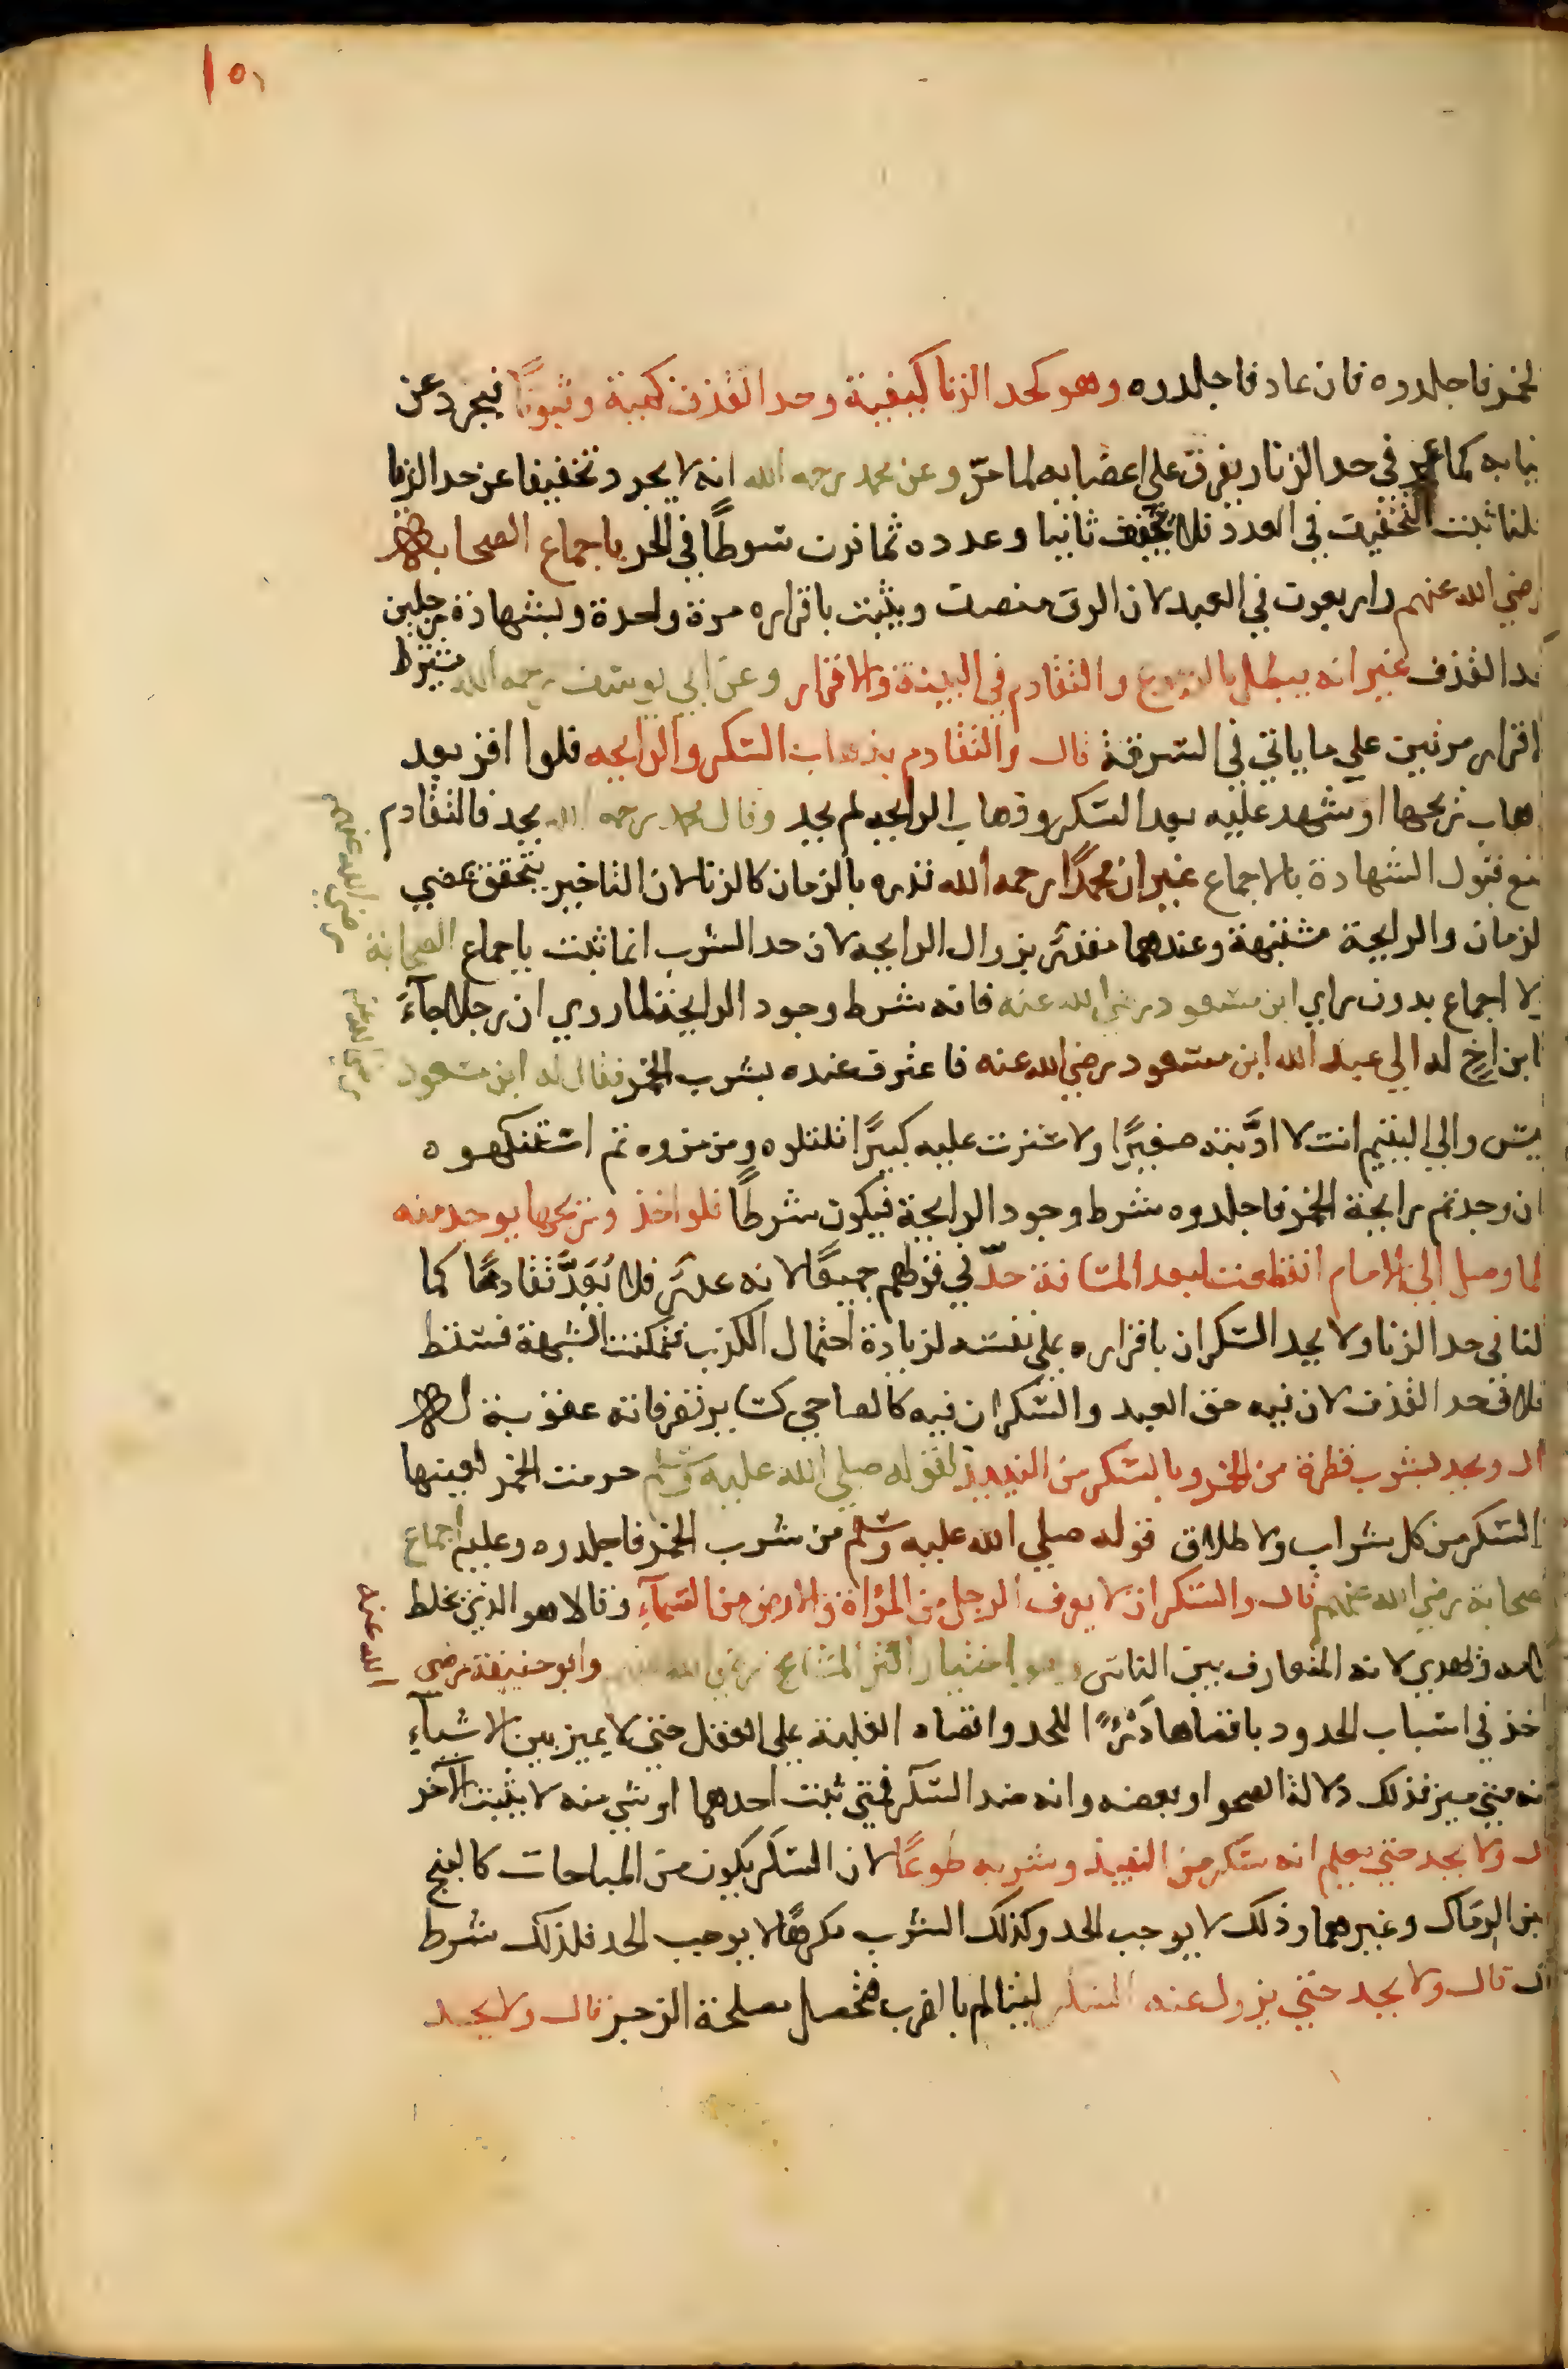 ١٥١
لخمر فاجلدوه فان عاد فاجلدوه وهو كحد الزنا كيفية وحد القذف كمية وثبوتا فيجرد عن
ثيابه كما مر في حد الزنا ويفرق على اعضايه لما مرّ وعن محمد رحمه الله انه لا يجرد تخفيفا عن حد الزنا
قلنا ثبت التخفيف في العدد فلا يخفف ثانيا وعدده ثمانون سوطًا في الحر باجماع الصحابه
رضي الله عنهم واربعون في العبد لان الرق منصف ويثبت باقراره مرة واحدة وبشهادة رجلين
كحد القذف غير انه يبطل بالرجوع والتقادم في البينة والاقرار وعن ابي يوسف رحمه الله يشترط
اقراره مرتين على ما ياتي في السرقة قال والتقادم بذهاب السكر والرايحه فلو اقر بعد
ذهاب ريحها او شهد عليه بعد السكر وذهاب الرايحه لم يحد وقال محمد رحمه الله يحد فالتقادم
يمنع قبول الشهادة بالاجماع غير ان محمدًا رحمه الله قدره بالزمان كالزنا لان التاخير يتحقق بمضي
لزمان والرايحة مشتبهة وعندهما مقدر بزوال الرايحه لان حد الشرب انما ثبت باجماع الصحابة
رضي الله عنهم
لا اجماع بدون راي ابن مسعود رضي الله عنه فانه شرط وجود الرايحة لما روي ان رجلا جآءَ
ابن اخٍ له الي عبد الله ابن مسعود رضي الله عنه فاعترف عنده بشرب الخمر فقال له ابن مسعود
رضي الله عنه
بيس والي اليتيم انت لا ادَّبته صغيرًا ولا سترت عليه كبيرًا تلتلوه ومزمزوه ثم استنكهوه
ان وجدتم رايحة الخمر فاجلدوه شرط وجود الرايحة فيكون شرطًا فلو اخذ وريحها يوجد منه
لما وصل الي الامام انقطعت لبعد المسافة حدّ في قولهم جميعًا لانه عذر فلا يُعَدُّ تقادمًا كما
لنا في حد الزنا ولا يحد السكران باقراره علي نفسه لزيادة احتمال الكذب فتمكنت الشبهة فسقط
خلاف حد القذف لان فيه حق العبد والسكران فيه كالصاحي كساير تصرفاته عقوبة له
ال ويحد بشرب قطرة من الخمر وبالسكر من النبيذ لقوله صلي الله عليه وسلم حرمت الخمر لعينها
السكر من كل شراب ولاطلاق قوله صلي الله عليه وسلم من شرب الخمر فاجلدوه وعليه اجماع
لصحابة رضي الله عنهم قال والسكران لا يعرف الرجل من المراة والارض من السمآءِ وقالا هو الذي يخلط
كلامه ويهذي لانه المتعارف بين الناس وهو اختيار اكثر المشايخ وابو حنيفة رضي
الله عنه
اخذ في اسباب الحدود باقصاها دَرْءًا للحد واقصاه الغلبة علي العقل حتي لا يميز بين الاشيآءِ
نه متي ميز فذلك دلالة الصحو او بعضه وانه ضد السكر فمتي ثبت احدهما او شي منه لا يثبت الآخر
ل ولا يحد حتي يعلم انه سكر من النبيذ وشربه طوعًا لان السكر يكون من المباحات كالبنج
لبن الرماك وغيرهما وذلك لا يوجب الحد وكذلك الشرب مكرهًا لا يوجب الحد فلذلك شرط
قال ولا يحد حتي يزول عنه السكر ليتالم بالضرب فتحصل مصلحة الزجر قال ولا يحد